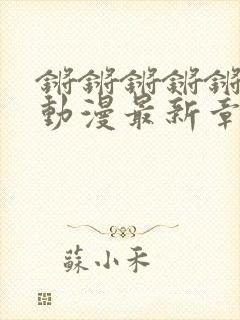 锵锵锵锵锵
動漫最新章
蘇小禾